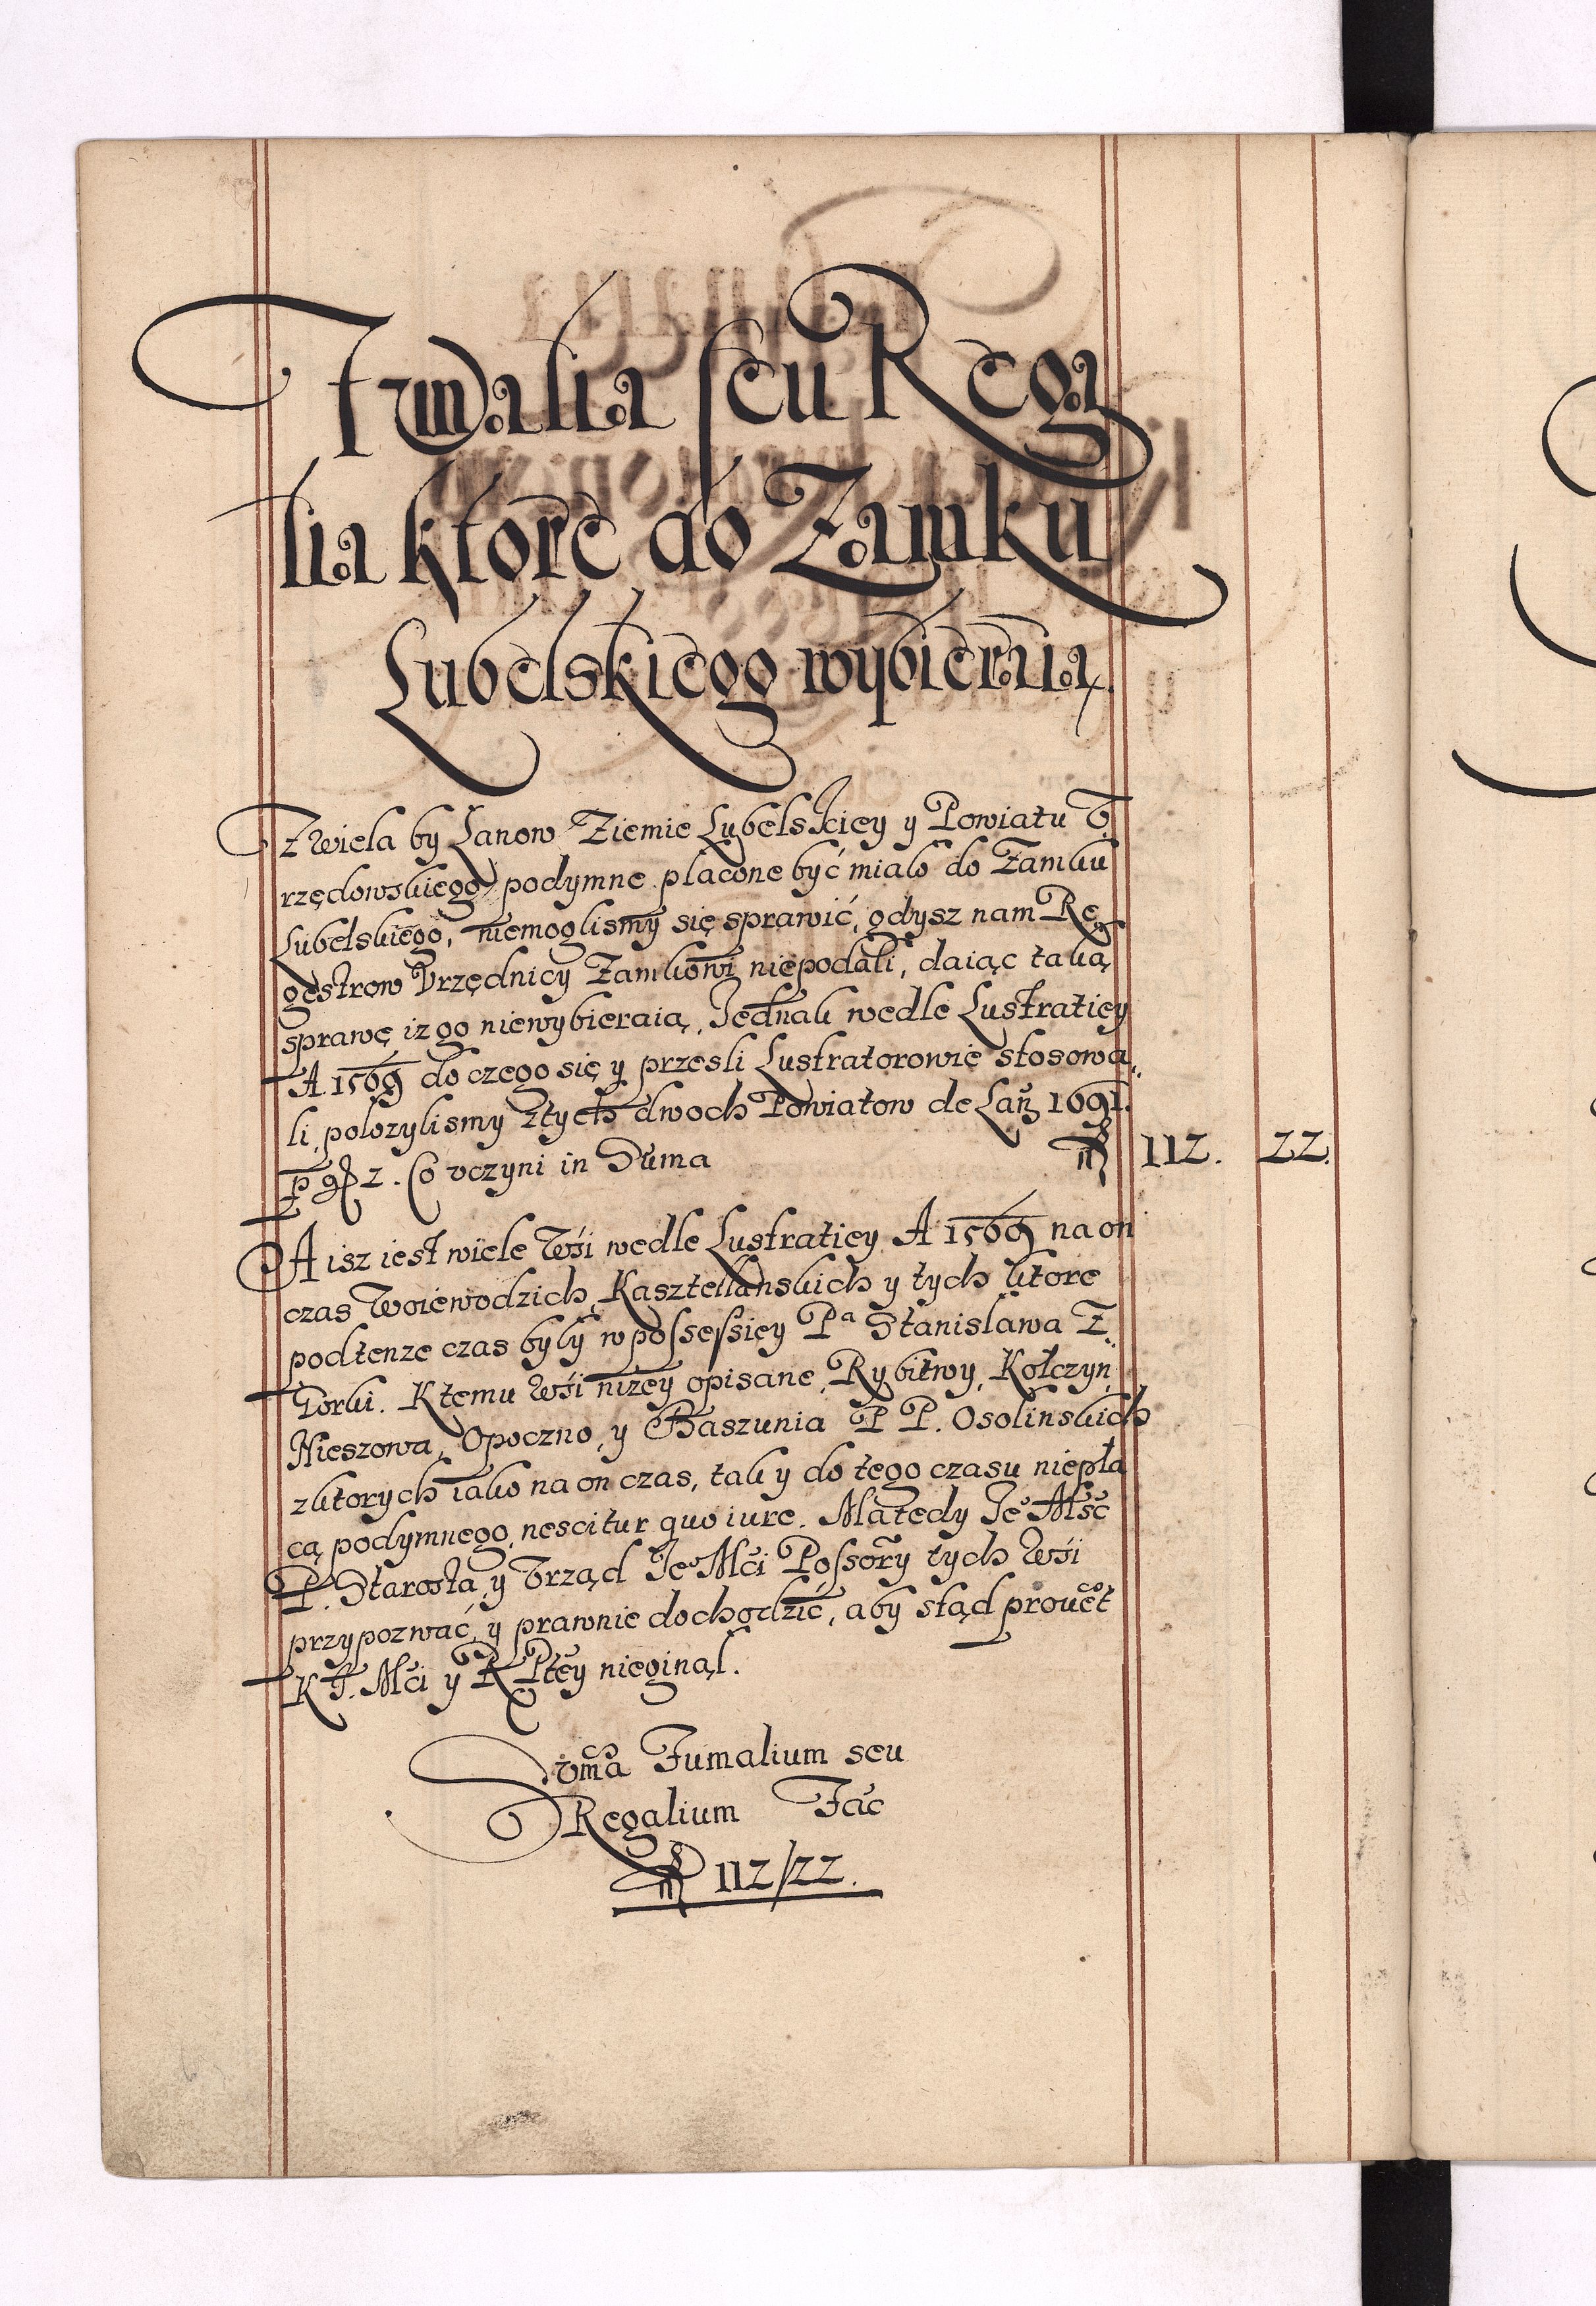 Fumalia seu Rega
lia ktore do Zamku
Lubelskiego wybieraia.
Z wiela by Lanow Ziemie Lubelskiey y Powiatu V
rzędowskiego podymne placone być mialo do Zamku
Lubelskiego, niemoglismy się sprawić, gdysz nam Re
gestrow Vrzędnicy Zamkowi niepodali, daiąc taką
sprawę iz go niewybieraią, Jednak wedle Lustratiey
A 1569 do czego się y przesli Lustratorowie stosowa
li, polozylismy z tych dwoch Powiatow de Lan 1691.
p gr 2. Co vczyni in Suma fl 112. 22.
A isz iest wiele Wsi wedle Lustratiey A 1569 na on
czas Woiewodzich, Kasztellanskich y tych ktore
pod tenze czas byly w possessiey Pa Stanislawa Z
Gorki. K temu Wsi nizey opisane, Rybitwy, Kolczyn,
Nieszowa, Opoczno, y Baszunia P P. Osolinskich
z ktorych iako na on czas, tak y do tego czasu niepla
cą podymnego, nescitur quo iure. Ma tedy Je Msc
P. Starosta, y Vrząd Je Mci Possory tych Wsi
przypozwać, y prawnie dochodzić, aby stąd prouet
K J. Mci y R Ptey nieginąl.
Suma Fumalium seu
Regalium Fac
fl 112/22.